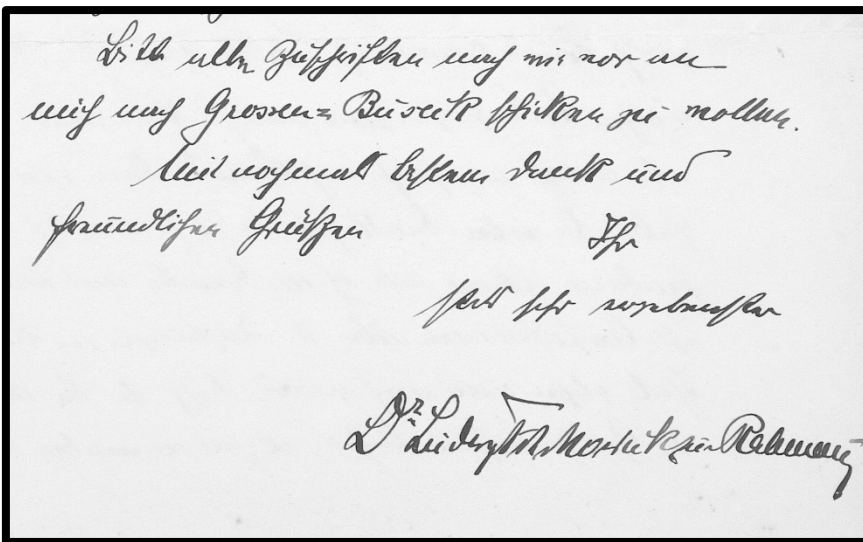 Bitte alle Zuschriften nach wie vor an
mich nach Grossen-Buseck schicken zu wollen.
Mit nochmals bestem Dank und
freundlichen Grüßen Ihr
stets sehr ergebenster
Dr. Ludwig